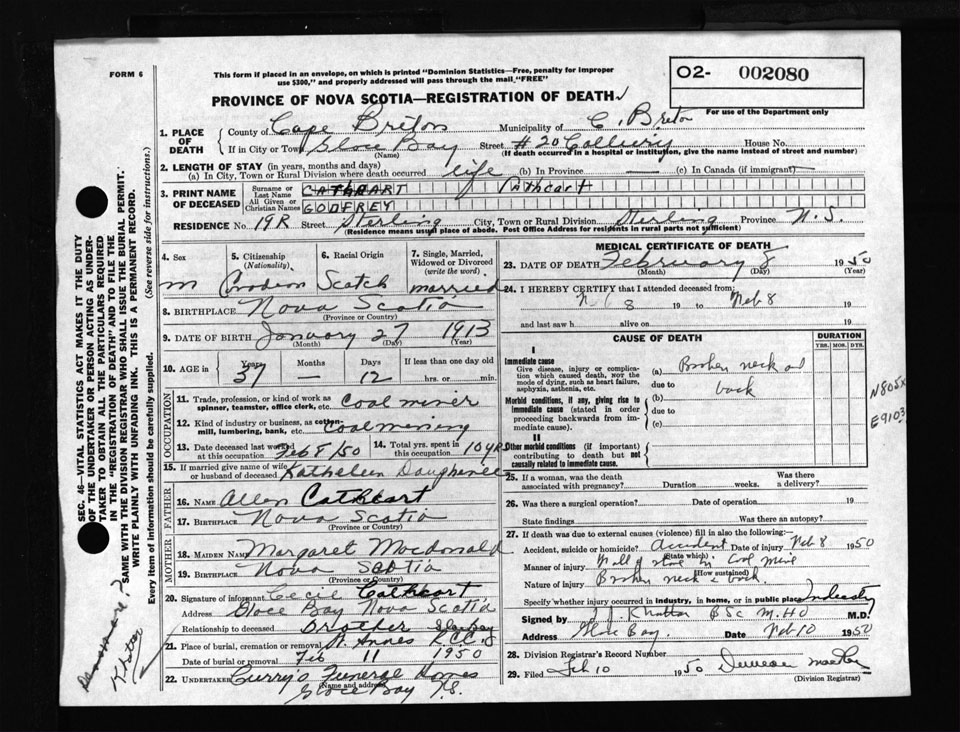 FORM 6
This form if placed in an envelope, on which is printed "Dominion Statistics—Free, penalty for improper
use $300," and properly addressed will pass through the mail "FREE"
O2- 002080
PROVINCE OF NOVA SCOTIA—REGISTRATION OF DEATH
For use of the Department only
1. PLACE OF DEATH
County of Cape Breton Municipality of C. Breton
If in City or Town Glace Bay Street #20 Colliery House No.
(Name) (If death occurred in a hospital or institution, give the name instead of street and number)
2. LENGTH OF STAY (in years, months and days)
(a) In City, Town or Rural Division where death occurred life (b) In Province — (c) In Canada (if immigrant) —
3. PRINT NAME OF DECEASED
Surname or Last Name CATHCART Cathcart
All Given or Christian Names GODFREY
RESIDENCE No. 19R Street Sterling City, Town or Rural Division Sterling Province N.S.
(Residence means usual place of abode. Post Office Address for residents in rural parts not sufficient)
4. Sex 5. Citizenship (Nationality) 6. Racial Origin 7. Single, Married, Widowed or Divorced (write the word)
m Canadian Scotch married
8. BIRTHPLACE Nova Scotia
(Province or Country)
9. DATE OF BIRTH January 27 1913
(Month) (Day) (Year)
10. AGE in Years Months Days If less than one day old
37 12 hrs. or min.
OCCUPATION
11. Trade, profession, or kind of work as spinner, teamster, office clerk, etc. Coal miner
12. Kind of industry or business, as cotton-mill, lumbering, bank, etc. Coal mining
13. Date deceased last worked at this occupation Feb 8/50 14. Total yrs. spent in this occupation 10 YRS
15. If married give name of wife or husband of deceased Kathleen
FATHER
16. NAME Allen Cathcart
17. BIRTHPLACE Nova Scotia
(Province or Country)
MOTHER
18. MAIDEN NAME Margaret Macdonald
19. BIRTHPLACE Nova Scotia
(Province or Country)
20. Signature of informant Cecil Cathcart
Address Glace Bay Nova Scotia
Relationship to deceased Brother Glace Bay
21. Place of burial, cremation or removal St Annes R.C.C.
Date of burial or removal Feb 11 1950
22. UNDERTAKER Curry's Funeral Homes
(Name and address)
Glace Bay N.S.
MEDICAL CERTIFICATE OF DEATH
23. DATE OF DEATH February 8 1950
(Month) (Day) (Year)
24. I HEREBY CERTIFY that I attended deceased from:
Feb 8 19 to Feb 8 19
and last saw h alive on 19
CAUSE OF DEATH DURATION
YRS. MOS. DYS.
I
Immediate cause
Give disease, injury or complication which caused death, NOT the mode of dying, such as heart failure, asphyxia, asthenia, etc.
(a) Broken neck and
due to back
Morbid conditions, if any, giving rise to immediate cause (stated in order proceeding backwards from immediate cause).
(b)
due to
(c)
II
Other morbid conditions (if important) contributing to death but not causally related to immediate cause.
N805X
E9103
25. If a woman, was the death associated with pregnancy? Duration weeks. Was there a delivery?
26. Was there a surgical operation? Date of operation 19
State findings Was there an autopsy?
27. If death was due to external causes (violence) fill in also the following:
Accident, suicide or homicide? Accident Date of injury Feb 8 1950
(State which)
Manner of injury Fall of stone in Coal Mine
(How sustained)
Nature of injury Broken neck & back.
Specify whether injury occurred in industry, in home, or in public place Industry
Signed by BSc M.H.O M.D.
Address Glace Bay. Date Feb 10 1950
28. Division Registrar's Record Number
29. Filed Feb 10 1950 Duncan
(Division Registrar)
SEC. 46—VITAL STATISTICS ACT MAKES IT THE DUTY
OF THE UNDERTAKER OR PERSON ACTING AS UNDERTAKER TO OBTAIN ALL THE PARTICULARS REQUIRED
IN THE "REGISTRATION OF DEATH" AND TO FILE THE
SAME WITH THE DIVISION REGISTRAR WHO SHALL ISSUE THE BURIAL PERMIT.
WRITE PLAINLY WITH UNFADING INK. THIS IS A PERMANENT RECORD.
Every item of information should be carefully supplied. (See reverse side for instructions.)